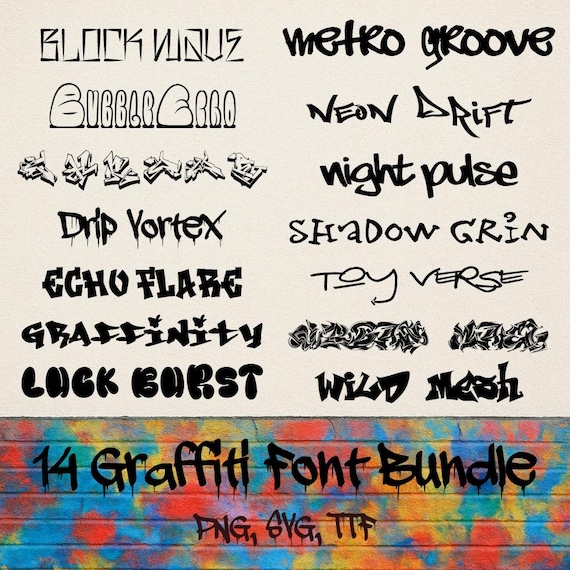 BLOCK WAVE
BubbleEcho
Drip Vortex
ECHO FLARE
GRAFFINITY
LUCK BURST
metro groove
NEON DRIFT
night pulse
SHADOW GRIN
TOY VERSE
URBAN
WILD Mesh
14 Graffiti Font Bundle
PNG, SVG, TTF